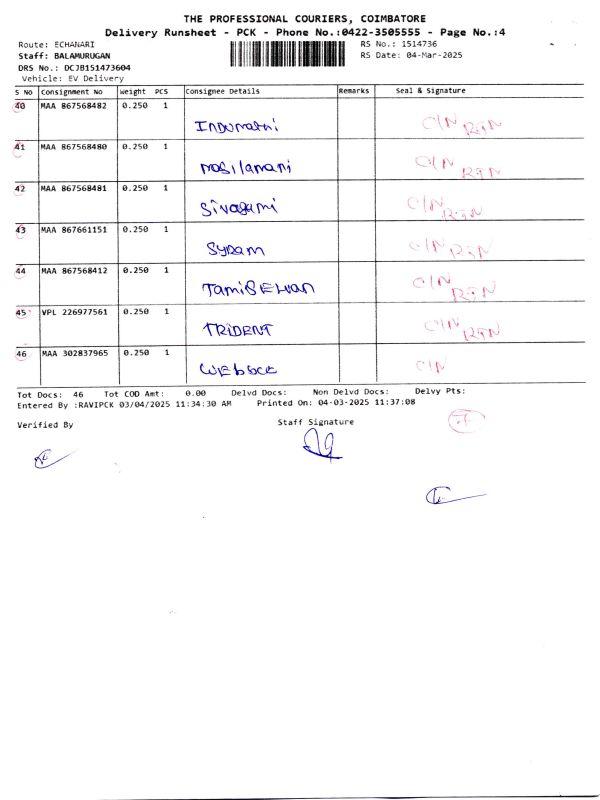 THE PROFESSIONAL COURIERS, COIMBATORE
Delivery Runsheet - PCK - Phone No.:0422-3505555 - Page No.:4
Route: ECHANARI RS No.: 1514736
Staff: BALAMURUGAN RS Date: 04-Mar-2025
DRS No.: DCJB151473604
Vehicle: EV Delivery
S NO Consignment No Weight PCS Consignee Details Remarks Seal & Signature
40 MAA 867568482 0.250 1
Indumathi C/N RTN
41 MAA 867568480 0.250 1
Masilamani C/N RTN
42 MAA 867568481 0.250 1
Sivagami C/N RTN
43 MAA 867661151 0.250 1
C/N RTN
44 MAA 867568412 0.250 1
C/N RTN
45 VPL 226977561 0.250 1
TRIDENT C/N RTN
46 MAA 302837965 0.250 1
C/N
Tot Docs: 46 Tot COD Amt: 0.00 Delvd Docs: Non Delvd Docs: Delvy Pts:
Entered By :RAVIPCK 03/04/2025 11:34:30 AM Printed On: 04-03-2025 11:37:08
Verified By Staff Signature